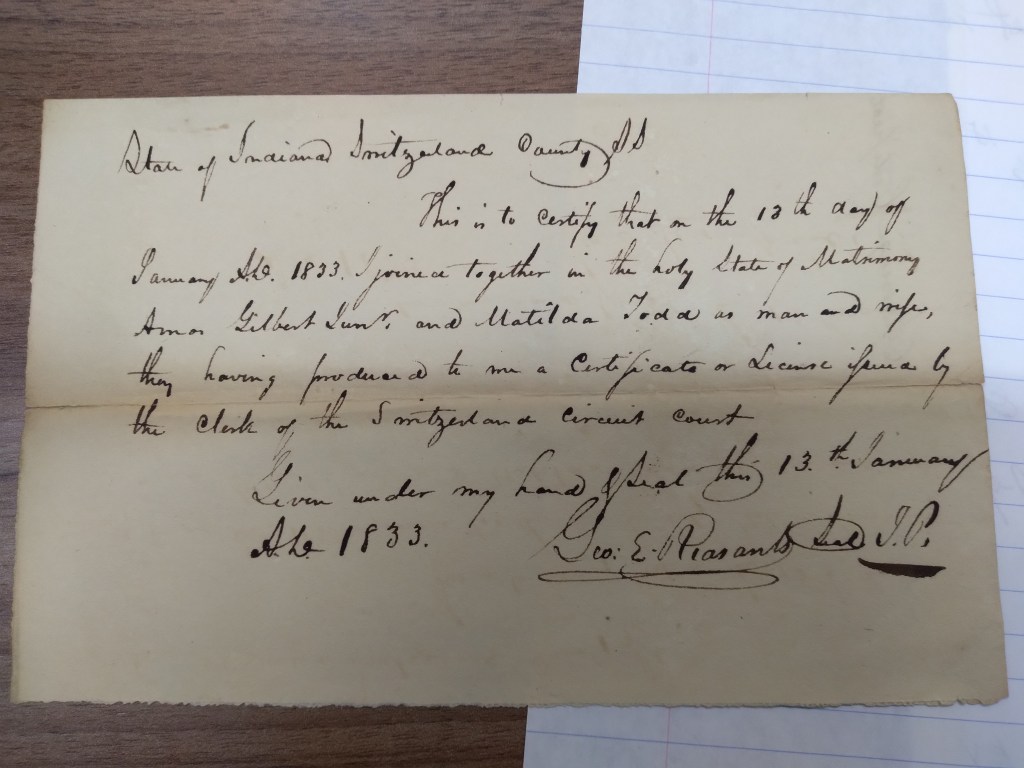 State of Indiana Switzerland County SS
This is to certify that on the 13th day of
January AD. 1833. I joined together in the holy State of Matrimony
Amos Gilbert Junr. and Matilda Todd as man and wife,
they having produced to me a Certificate or License issued by
the Clerk of the Switzerland circuit court
Given under my hand & Seal this 13.th January
AD 1833. Geo: E. Pleasants Seal J.P.